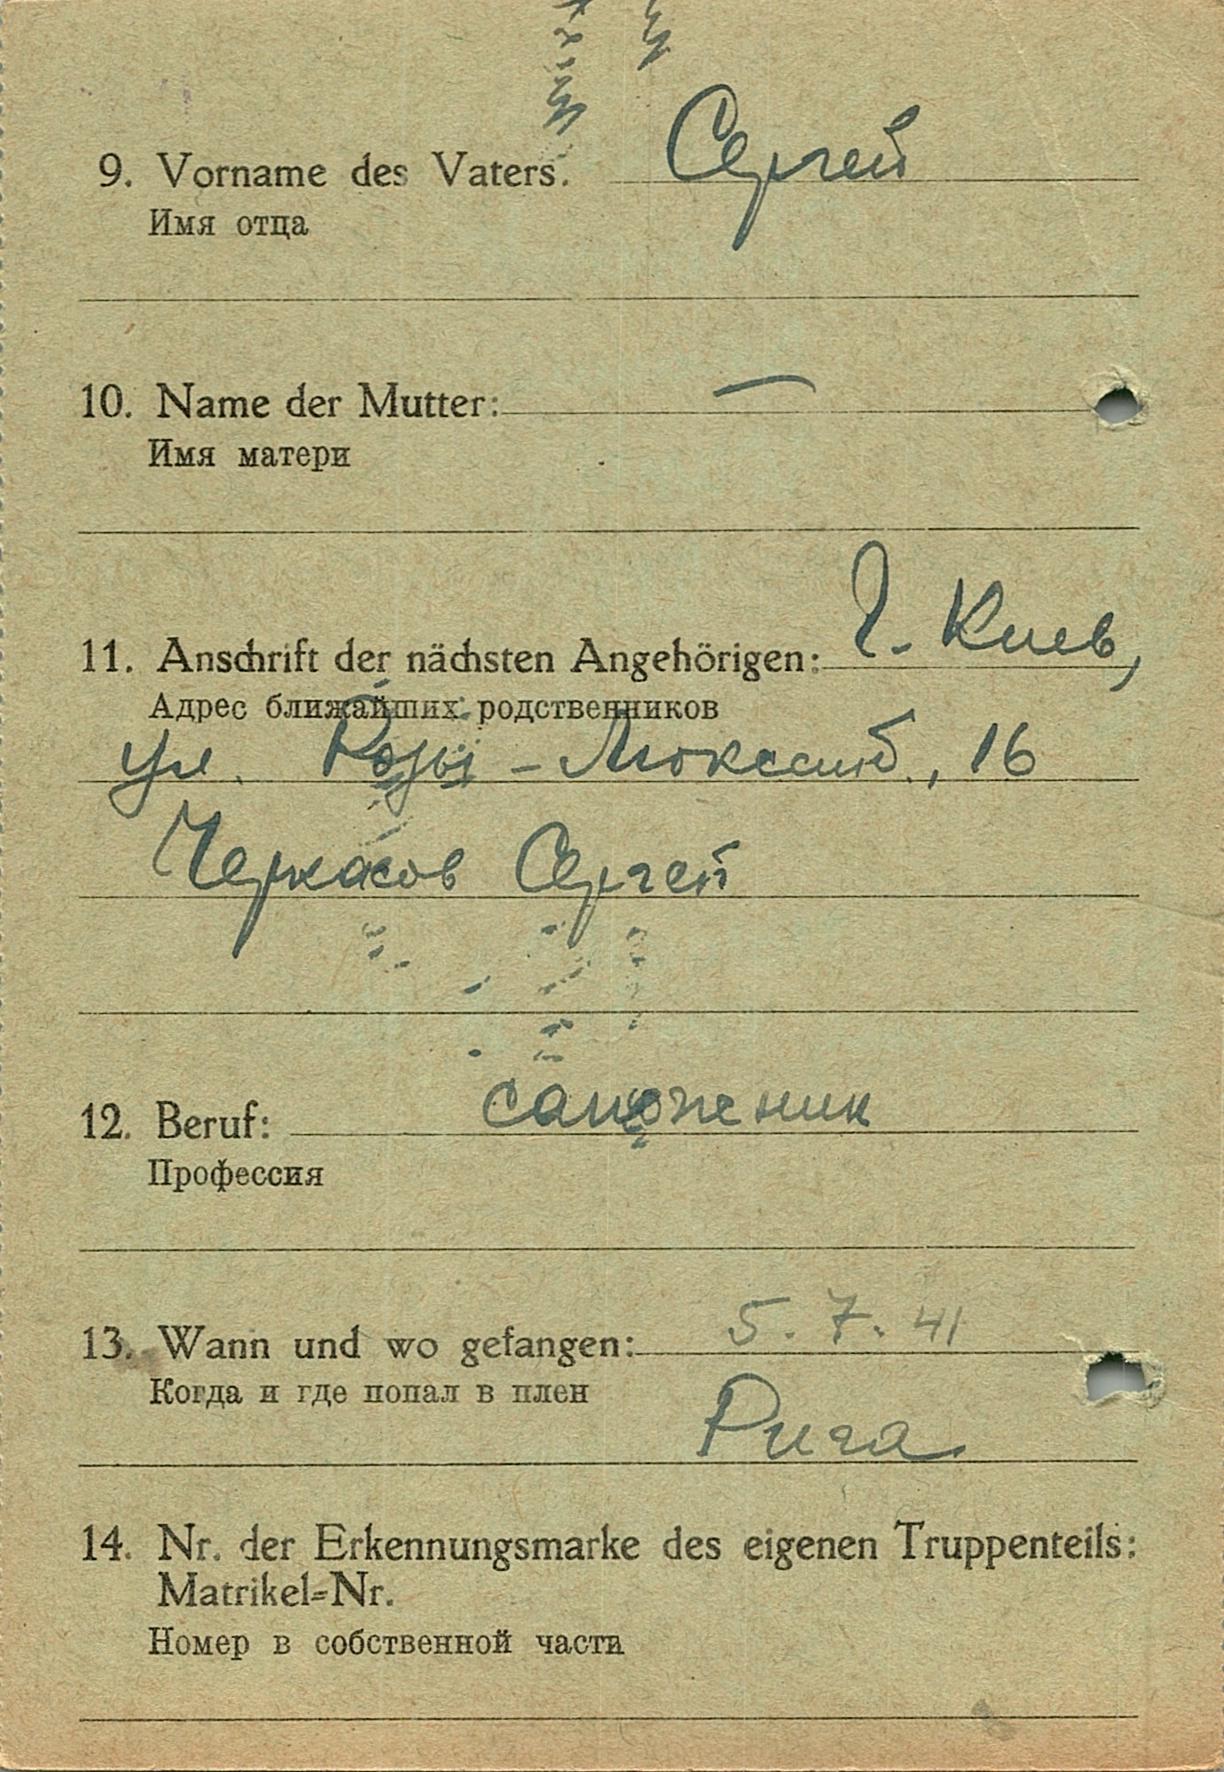 9. Vorname des Vaters. Сергей
Имя отца
10. Name der Mutter: —
Имя матери
11. Anschrift der nächsten Angehörigen: г. Киев,
Адрес ближайших родственников
ул. Розы - Люксемб., 16
Черкасов Сергей
12. Beruf: сапожник
Профессия
13. Wann und wo gefangen: 5. 7. 41
Когда и где попал в плен
Рига
14. Nr. der Erkennungsmarke des eigenen Truppenteils:
Matrikel=Nr.
Номер в собственной части